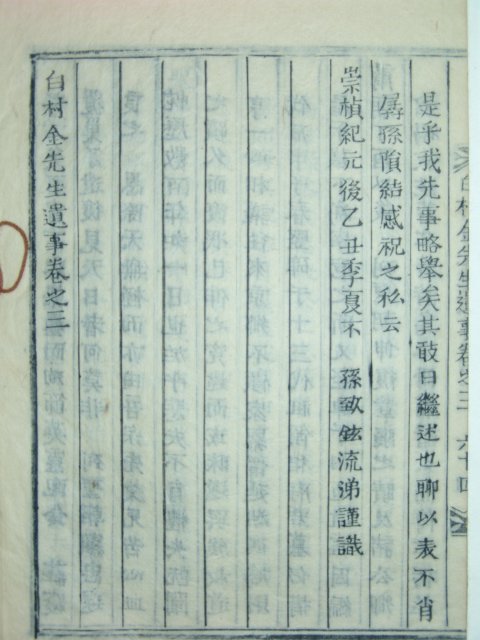 白村金先生遺事卷之三 六十四
是乎我先事略擧矣其敢曰繼述也聊以表不肖
孱孫隕結感祝之私云
崇禎紀元後乙丑季夏不 孫致鉉流涕謹識
白村金先生遺事卷之三